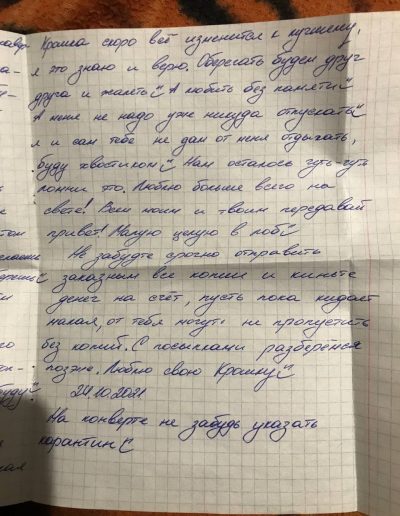 Крошка скоро всё изменится к лучшему,
я это знаю и верю. Оберегать будем друг
друга и жалеть" А любить без памяти"
А меня не надо уже никуда отпускать"
я и сам тебе не дам от меня отдыхать,
буду хвостиком" Нам осталось чуть-чуть
помни это. Люблю больше всего на
свете! Всем моим и твоим передавай
привет! Малую целую в лоб"
Не забудьте срочно отправить
заказным все копии и киньте
денег на счёт, пусть пока кидает
малая, от тебя могут не пропустить
без копий. С посылками разберёмся
позже. Люблю свою Крошку"
24.10.2021
На конверте не забудь указать
карантин"